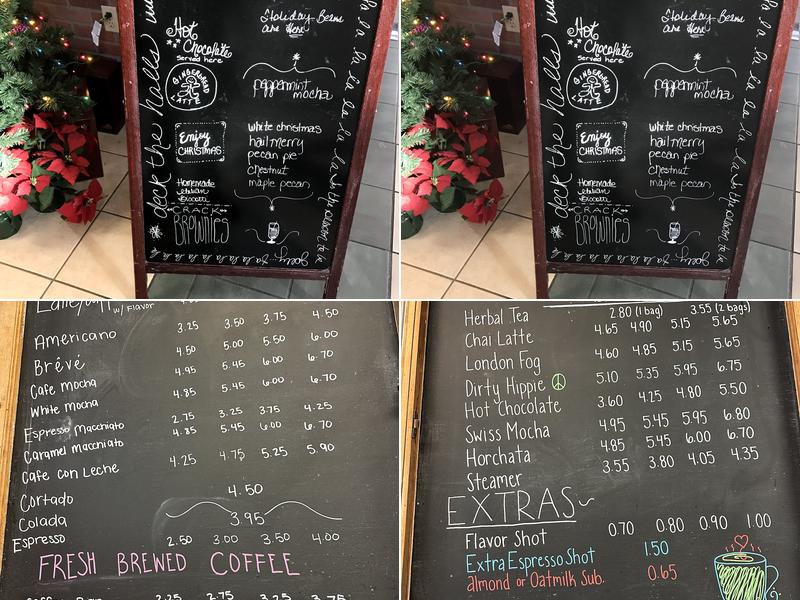 deck the halls
Hot
Chocolate
served here
GINGERBREAD
LATTE
Enjoy
CHRISTMAS
Homemade
Italian
Biscotti
CRACK
BROWNIES
Holiday Beans
are Here
peppermint
mocha
White christmas
hail merry
pecan pie
chestnut
maple pecan
la la la la la la la la 'tis the season to be
jolly fa la la la la la la la la
deck the halls
Hot
Chocolate
served here
GINGERBREAD
LATTE
Enjoy
CHRISTMAS
Homemade
Italian
Biscotti
CRACK
BROWNIES
Holiday Beans
are Here
peppermint
mocha
White christmas
hail merry
pecan pie
chestnut
maple pecan
la la la la la la la la 'tis the season to be
jolly fa la la la la la la la la
w/ Flavor
Americano 3.25 3.50 3.75 4.50
Brévé 4.50 5.00 5.50 6.00
Cafe mocha 4.95 5.45 6.00 6.70
White mocha 4.85 5.45 6.00 6.70
Espresso Macchiato 2.75 3.25 3.75 4.25
Caramel macchiato 4.85 5.45 6.00 6.70
Cafe con Leche 4.25 4.75 5.25 5.90
Cortado 4.50
Colada 3.95
Espresso 2.50 3.00 3.50 4.00
FRESH BREWED COFFEE
2.25 2.75 3.25 3.75
Herbal Tea 2.80 (1 bag) 3.55 (2 bags)
Chai Latte 4.65 4.90 5.15 5.65
London Fog 4.60 4.85 5.15 5.65
Dirty Hippie 5.10 5.35 5.95 6.75
Hot Chocolate 3.60 4.25 4.80 5.50
Swiss Mocha 4.95 5.45 5.95 6.80
Horchata 4.85 5.45 6.00 6.70
Steamer 3.55 3.80 4.05 4.35
EXTRAS
Flavor Shot 0.70 0.80 0.90 1.00
Extra Espresso Shot 1.50
almond or Oatmilk Sub. 0.65